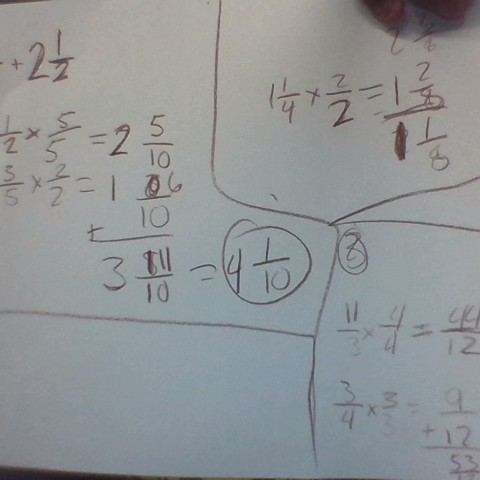 + 2 1/2
1/2 × 5/5 = 2 5/10
3/5 × 2/2 = 1 6/10
+
3 11/10 = 4 1/10
1 1/4 × 2/2 = 1 2/8
1 1/8
8
11/3 × 4/4 = 44/12
3/4 × 3/3 = 9
+ 12
53